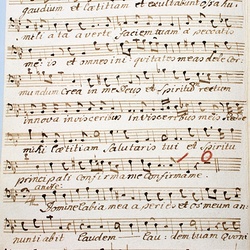 gaudium et lætitiam et exultabunt ossa hu
mili ata averte faciem tuam a peccatis
me is et omnes ini quitates meas dele cor
mundum Crea in me Deus et Spiritu rectum
innova invisceribus invisceribus meis
mihi lætitiam Salutaris tui et Spiritu
principali confirma me confirma me.
andte:
Domine labia mea a peries et os meum an
nuntiabit Laudem Lau dem tuam Quon